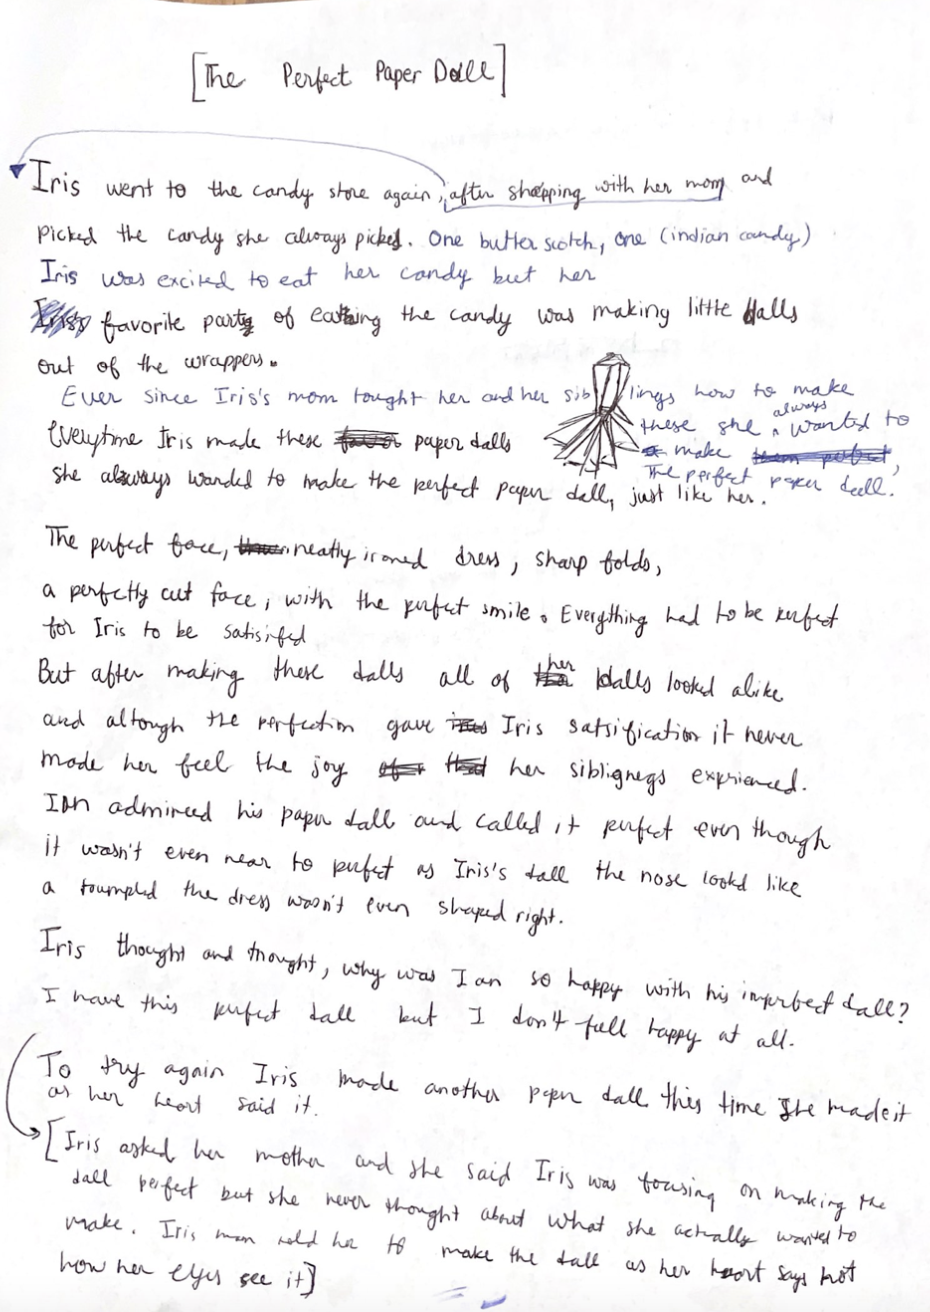 [The Perfect Paper Dall]
Iris went to the candy store again, after shopping with her mom and
picked the candy she always picked. One butter scotch, one (indian candy)
Iris was excited to eat her candy but her
favorite party of eating the candy was making little dalls
out of the wrappers.
Ever since Iris's mom tought her and her siblings how to make
these she always wanted to
Everytime Iris made these paper dalls
make them perfect,
the perfect paper dall.
she always wanded to make the perfect paper dall, just like her.
The perfect face, neatly ironed dress, sharp folds,
a perfectly cut face, with the perfect smile. Everything had to be perfect
for Iris to be satisifed
But after making these dalls all of her dalls looked alike
and altough the perfection gave Iris satsification it never
made her feel the joy her siblignegs exprienced.
Ian admireed his paper dall and called it perfect even though
it wasn't even near to perfect as Iris's dall the nose lookd like
a toumpled the dress wasn't even shaped right.
Iris thought and thought, why was Ian so happy with his imperfect dall?
I have this perfect dall but I don't fell happy at all.
To try again Iris made another paper dall this time she made it
as her heart said it.
[Iris asked her mother and she said Iris was focusing on making the
dall perfect but she never thought about what she actually wanted to
make. Iris mom told her to make the dall as her heart says not
how her eyes see it]